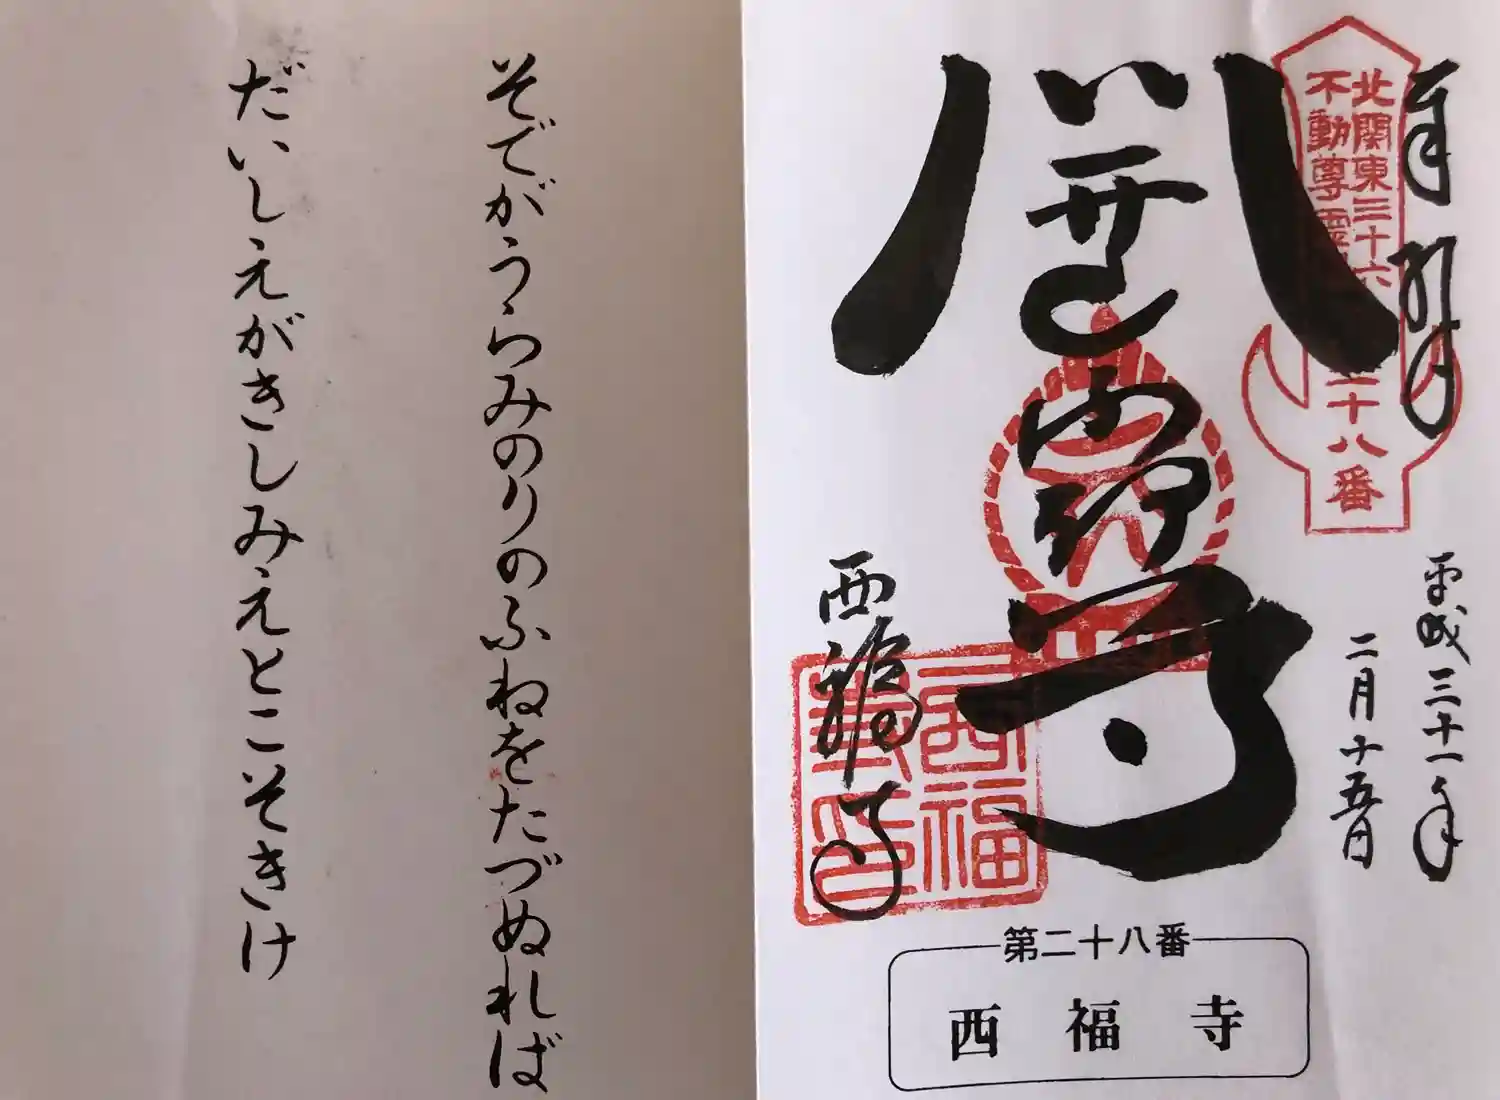 奉拝
北関東三十六
不動尊霊
二十八番
平成三十一年
二月十五日
尊
西福寺
第二十八番
西福寺
そでがうらみのりのふねをたづぬれば
だいしえがきしみえとこそきけ